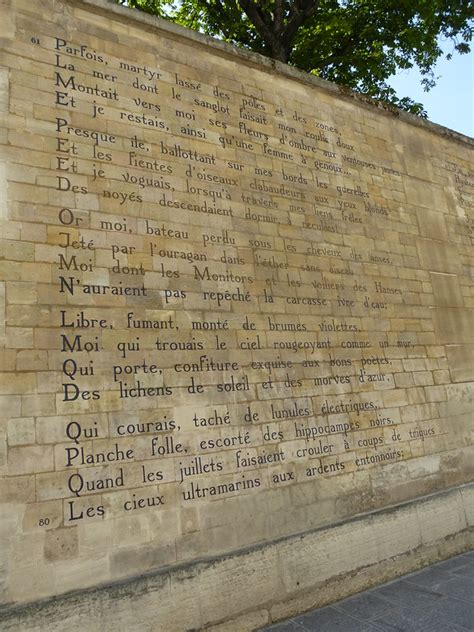 61 Parfois, martyr lassé des pôles et des zones,
La mer dont le sanglot faisait mon roulis doux
Montait vers moi ses fleurs d'ombre aux ventouses jaunes
Et je restais, ainsi qu'une femme à genoux...
Presque île, ballottant sur mes bords les querelles
Et les fientes d'oiseaux clabaudeurs aux yeux blonds
Et je voguais, lorsqu'à travers mes liens frêles
Des noyés descendaient dormir, à reculons!
Or moi, bateau perdu sous les cheveux des anses,
Jeté par l'ouragan dans l'éther sans oiseau
Moi dont les Monitors et les voiliers des Hanses
N'auraient pas repêché la carcasse ivre d'eau;
Libre, fumant, monté de brumes violettes,
Moi qui trouais le ciel rougeoyant comme un mur,
Qui porte, confiture exquise aux bons poètes,
Des lichens de soleil et des morves d'azur,
Qui courais, taché de lunules électriques,
Planche folle, escorté des hippocampes noirs,
Quand les juillets faisaient crouler à coups de triques
80 Les cieux ultramarins aux ardents entonnoirs;